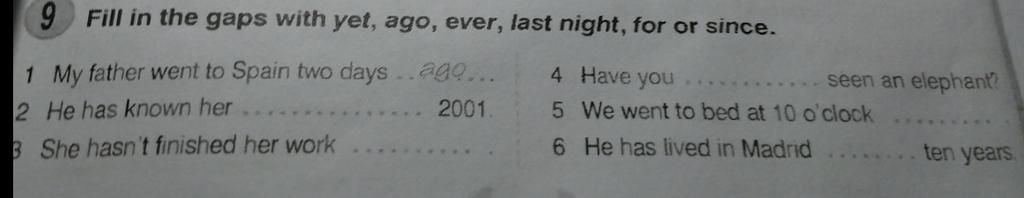 9 Fill in the gaps with yet, ago, ever, last night, for or since.
1 My father went to Spain two days ..ago...
2 He has known her ................ 2001.
3 She hasn't finished her work .............
4 Have you ............ seen an elephant?
5 We went to bed at 10 o'clock ..........
6 He has lived in Madrid ........ ten years.